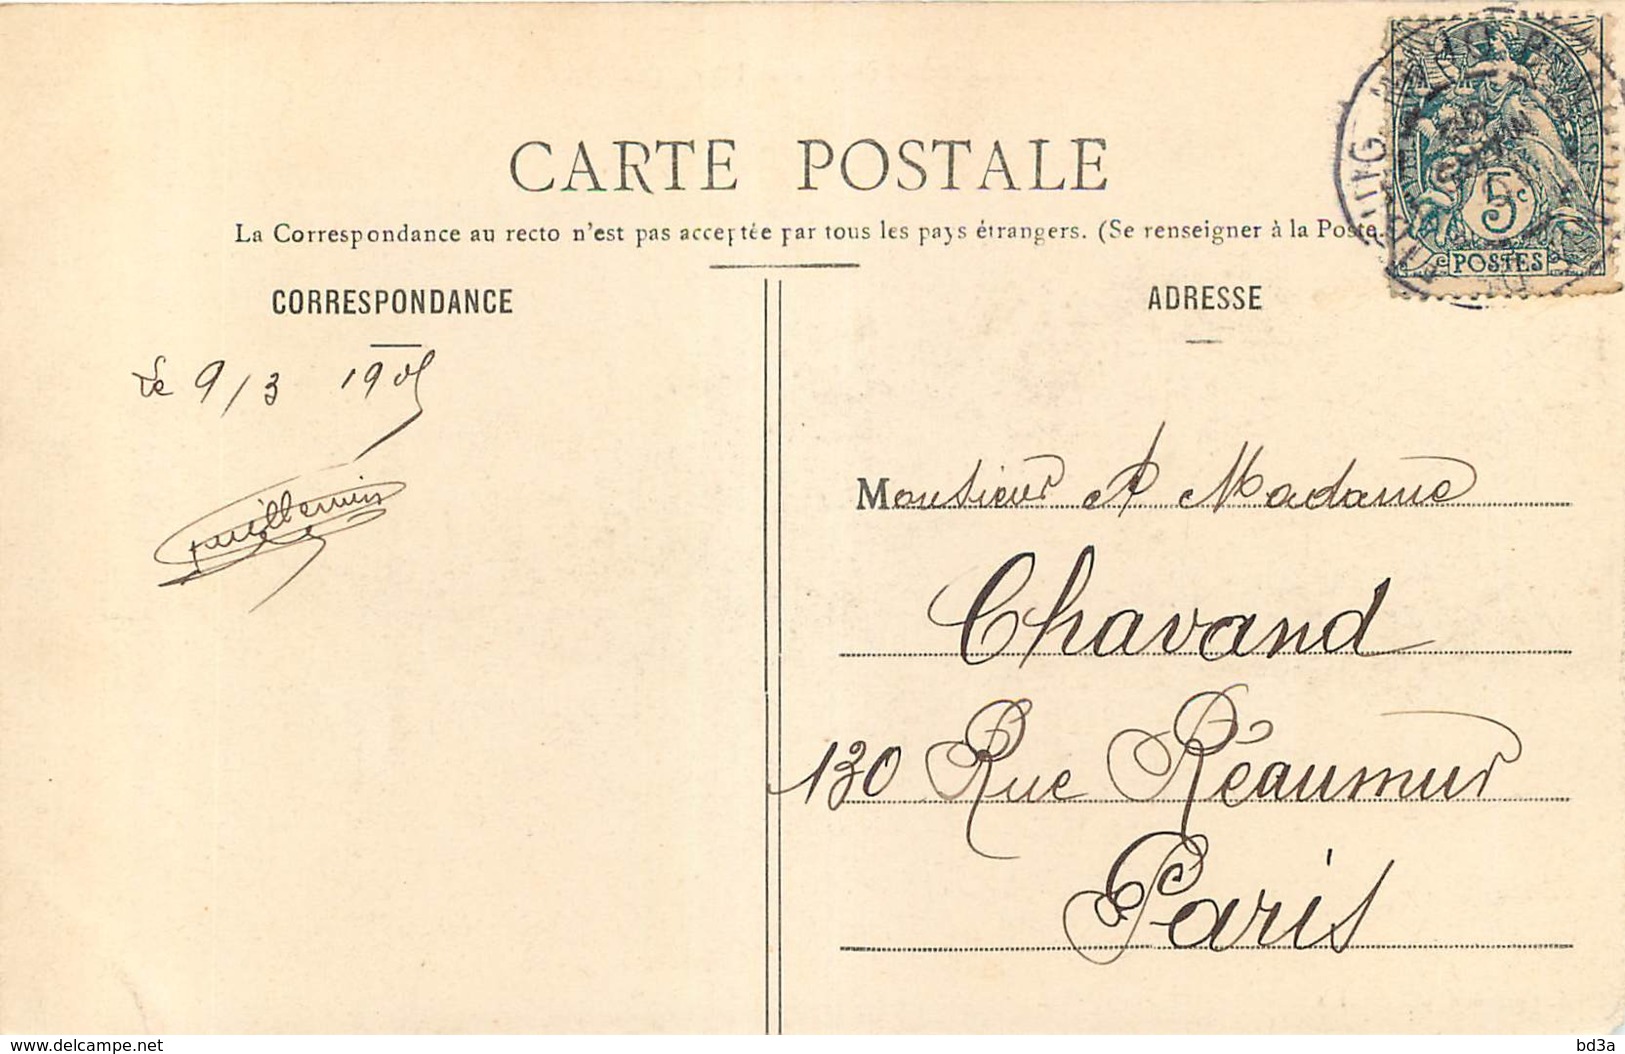 CARTE POSTALE
La Correspondance au recto n'est pas acceptée par tous les pays étrangers. (Se renseigner à la Poste.
CORRESPONDANCE
ADRESSE
5c
POSTES
Le 9/3 1905
Guillemin
Monsieur et Madame
Chavand
130 Rue Réaumur
Paris
www.delcampe.net
bd3a